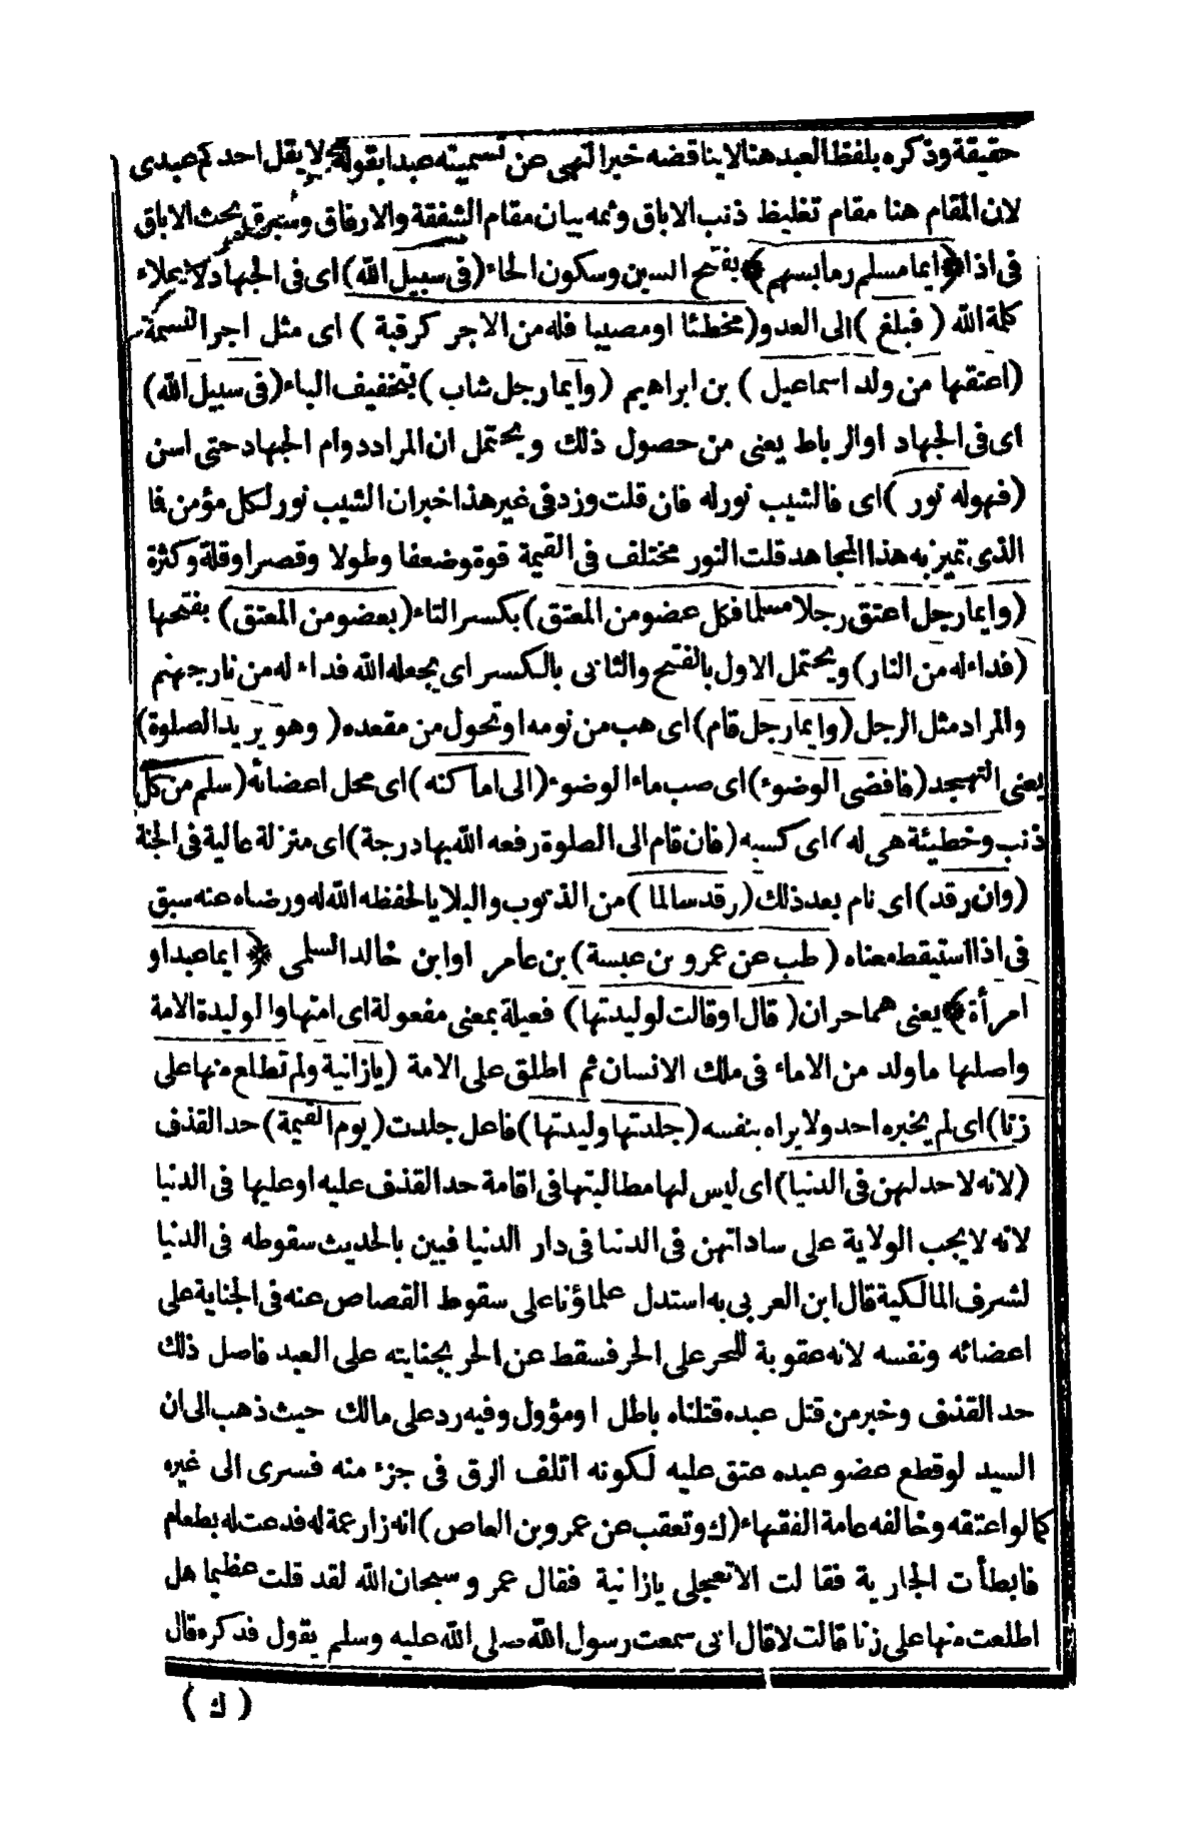 حقيقة وذكره بلفظ العبد هنا لا يناقضه خبر النهى عن تسميته عبدا بقوله لا يقل احدكم عبدى
لان المقام هنا مقام تغليظ ذنب الاباق وثمه بيان مقام الشفقة والارفاق وسبق بحث الاباق
فى اذا ﴿ ايما مسلم رما بسهم ﴾ بفتح السين وسكون الحاء ( فى سبيل الله ) اى فى الجهاد لا يملاء
كلمة الله ( فبلغ ) الى العدو ( مخطئا او مصيبا فله من الاجر كرقبة ) اى مثل اجر النسمة
( اعتقها من ولد اسماعيل ) بن ابراهيم ( وايما رجل شاب ) بتخفيف الباء ( فى سبيل الله )
اى فى الجهاد او الرباط يعنى من حصول ذلك ويحتمل ان المراد دوام الجهاد حتى اسن
( فهو له نور ) اى فالشيب نور له فان قلت وزد فى غير هذا خبر ان الشيب نور لكل مؤمن فا
الذى تميز به هذا المجاهد قلت النور مختلف فى القيمة قوة وضعفا وطولا وقصرا وقلة وكثرة
( وايما رجل اعتق رجلا مسلما فكل عضو من المعتق ) بكسر التاء ( بعضو من المعتق ) بفتحها
( فداء له من النار ) ويحتمل الاول بالفتح والثانى بالكسر اى يجعله الله فداء له من نار جهنم
والمراد مثل الرجل ( وايما رجل قام ) اى هب من نومه او تحول من مقعده ( وهو يريد الصلوة )
يعنى التهجد ( فافضى الوضوء ) اى صب ماء الوضوء ( الى اماكنه ) اى محل اعضائه ( سلم من كل
ذنب وخطيئة هى له ) اى كسبه ( فان قام الى الصلوة رفعه الله بها درجة ) اى منزلة عالية فى الجنة
( وان رقد ) اى نام بعد ذلك ( رقد سالما ) من الذنوب والبلايا لحفظه الله له ورضاه عنه سبق
فى اذا استيقظ معناه ( طب عن عمرو بن عبسة ) بن عامر او ابن خالد السلمى ﴿ ايما عبد او
امرأة ﴾ يعنى هما حران ( قال او قالت لوليدتها ) فعيلة بمعنى مفعولة اى امتها والوليدة الامة
واصلها ما ولد من الاماء فى ملك الانسان ثم اطلق على الامة ( يازانية ولم تطلع منها على
زنا ) اى لم يخبره احد ولا يراه بنفسه ( جلدتها وليدتها ) فاعل جلدت ( يوم القيمة ) حد القذف
( لانه لا حد لهن فى الدنيا ) اى ليس لها مطالبتها فى اقامة حد القذف عليه او عليها فى الدنيا
لانه لا يجب الولاية على ساداتهن فى الدنيا فى دار الدنيا فبين بالحديث سقوطه فى الدنيا
لشرف المالكية قال ابن العربى به استدل علماؤنا على سقوط القصاص عنه فى الجناية على
اعضائه ونفسه لانه عقوبة للحر على الحر فسقط عن الحر بجنايته على العبد فاصل ذلك
حد القذف وخبر من قتل عبده قتلناه باطل او مؤول وفيه رد على مالك حيث ذهب الى ان
السيد لو قطع عضو عبده عتق عليه لكونه اتلف الرق فى جزء منه فسرى الى غيره
كما لو اعتقه وخالفه عامة الفقهاء ( ك وتعقب عن عمرو بن العاص ) انه زار عمة له فدعت له بطعام
فابطأت الجارية فقالت الا تعجلى يازانية فقال عمرو سبحان الله لقد قلت عظيما هل
اطلعت منها على زنا قالت لا قال انى سمعت رسول الله صلى الله عليه وسلم يقول فذكره قال
( ك )